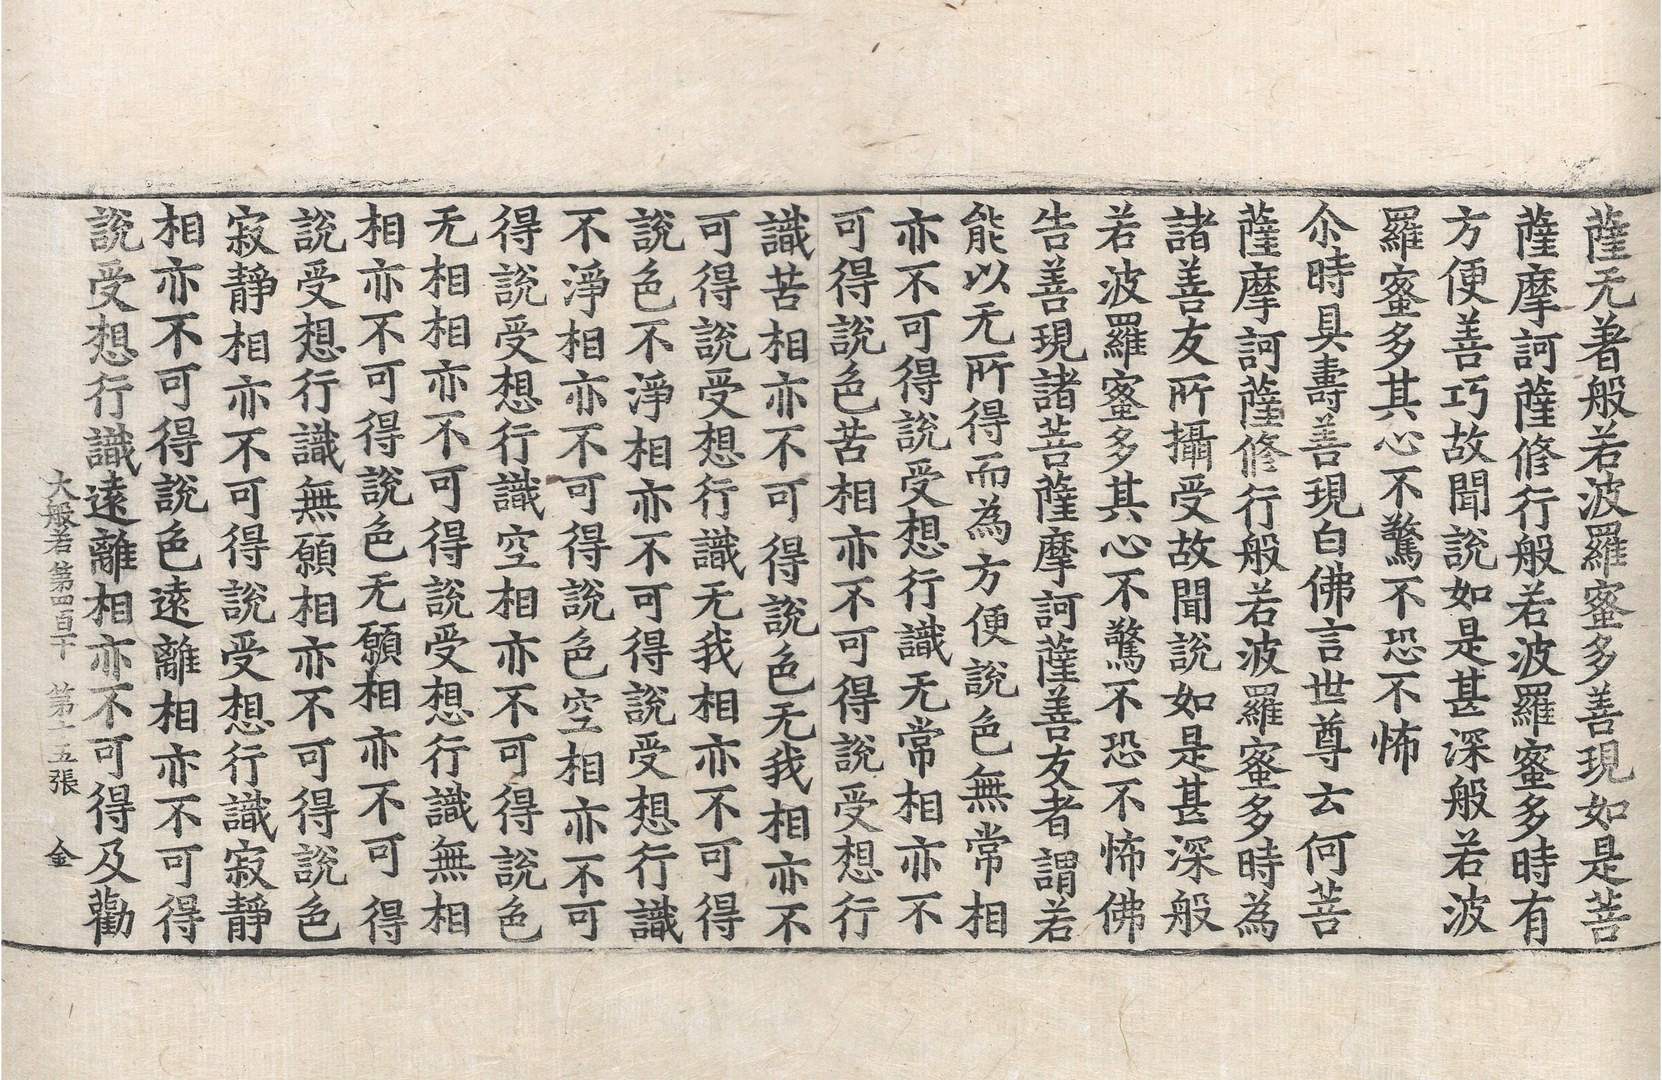 薩无著般若波羅蜜多善現如是菩
薩摩訶薩修行般若波羅蜜多時有
方便善巧故聞說如是甚深般若波
羅蜜多其心不驚不恐不怖
尒時具壽善現白佛言世尊云何菩
薩摩訶薩修行般若波羅蜜多時為
諸善友所攝受故聞說如是甚深般
若波羅蜜多其心不驚不恐不怖佛
告善現諸菩薩摩訶薩善友者謂若
能以无所得而為方便說色無常相
亦不可得說受想行識无常相亦不
可得說色苦相亦不可得說受想行
識苦相亦不可得說色无我相亦不
可得說受想行識无我相亦不可得
說色不淨相亦不可得說受想行識
不淨相亦不可得說色空相亦不可
得說受想行識空相亦不可得說色
无相相亦不可得說受想行識無相
相亦不可得說色无願相亦不可得
說受想行識無願相亦不可得說色
寂靜相亦不可得說受想行識寂靜
相亦不可得說色遠離相亦不可得
說受想行識遠離相亦不可得及勸
大般若第四百 第十五張 金